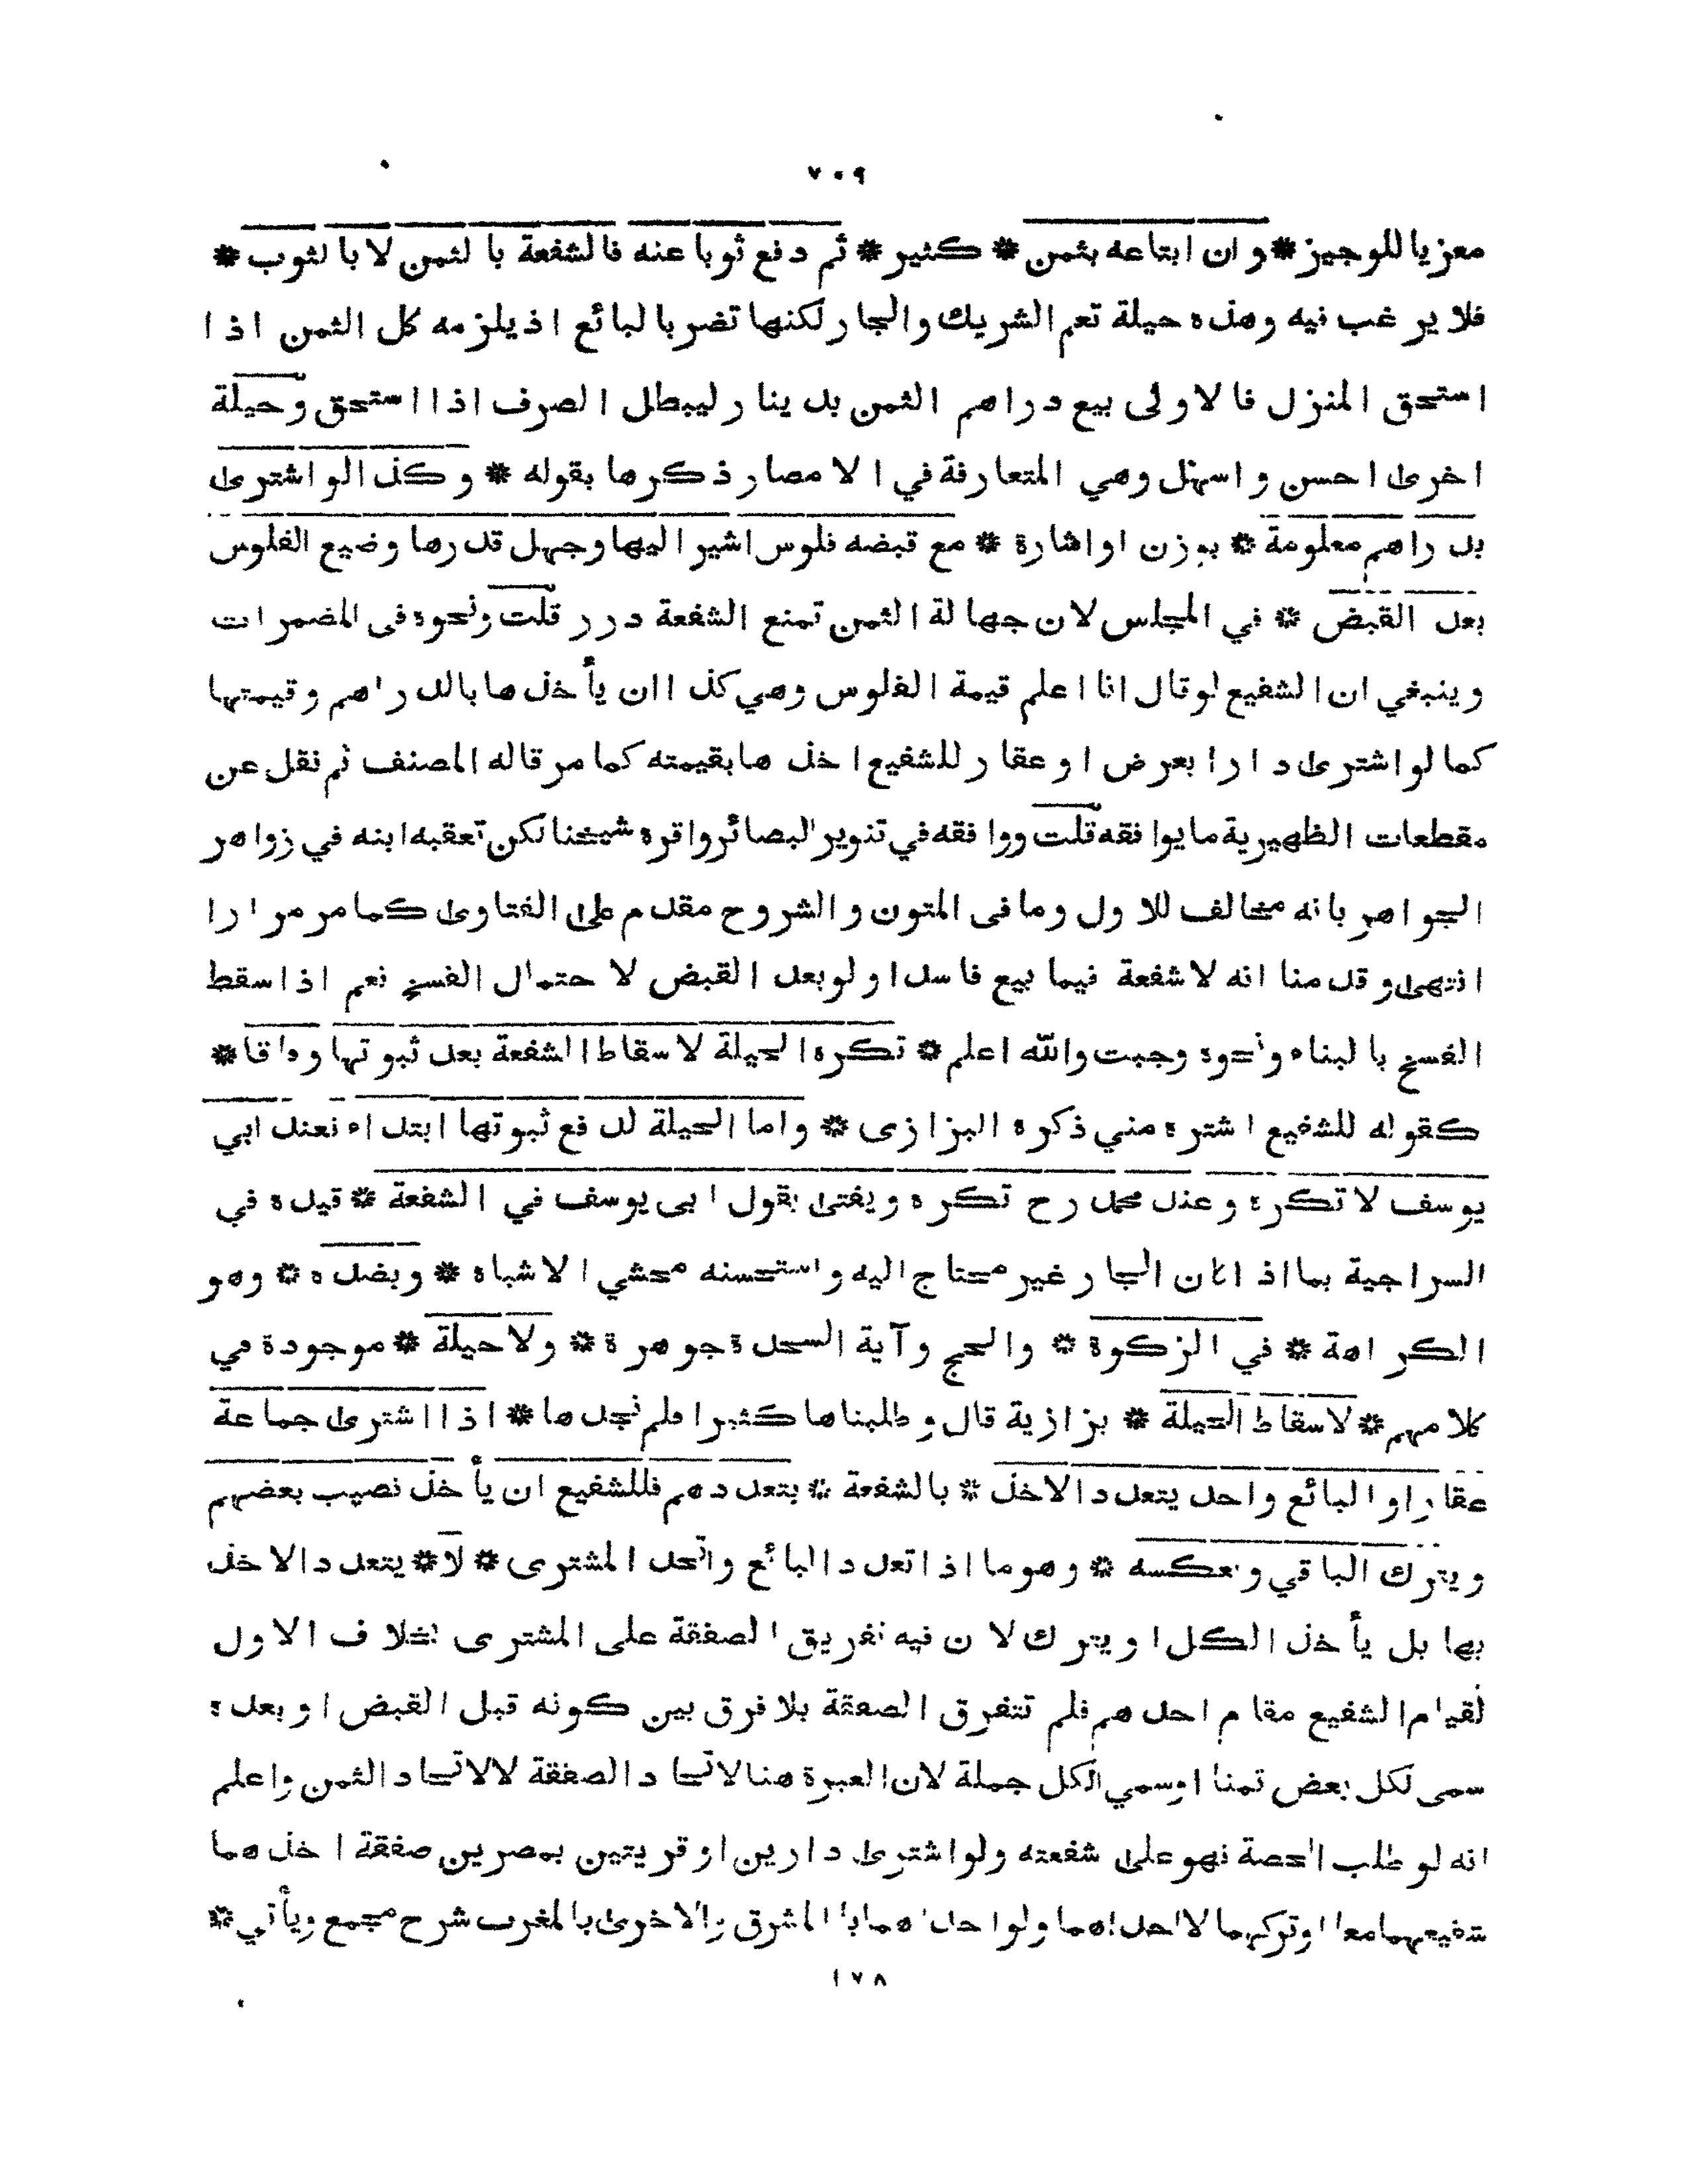 ٧٠٩
معزيا للوجيز * وان ابتاعه بثمن * كثير * ثم دفع ثوبا عنه فالشفعة بالثمن لا بالثوب *
فلا يرغب فيه وهذه حيلة تعم الشريك والجار لكنها تضر بالبائع اذ يلزمه كل الثمن اذا
استحق المنزل فالاولى بيع دراهم الثمن بدينار ليبطل الصرف اذا استحق وحيلة
اخرى احسن واسهل وهي المتعارفة في الامصار ذكرها بقوله * وكذا لو اشترى
بدراهم معلومة * بوزن او اشارة * مع قبضه فلوس اشير اليها وجهل قدرها وضيع الفلوس
بعد القبض * في المجلس لان جهالة الثمن تمنع الشفعة درر قلت ونحوه فى المضمرات
وينبغي ان الشفيع لو قال انا اعلم قيمة الفلوس وهي كذا ان يأخذها بالدراهم وقيمتها
كما لو اشترى دارا بعرض او عقار للشفيع اخذها بقيمته كما مر قاله المصنف ثم نقل عن
مقطعات الظهيرية ما يوافقه قلت ووافقه في تنوير البصائر واقره شيخنا لكن تعقبه ابنه في زواهر
الجواهر بانه مخالف للاول وما فى المتون والشروح مقدم على الفتاوى كما مر مرارا
انتهى وقدمنا انه لا شفعة فيما بيع فاسدا ولو بعد القبض لاحتمال الفسخ نعم اذا سقط
الفسخ بالبناء ونحوه وجبت والله اعلم * تكره الحيلة لاسقاط الشفعة بعد ثبوتها وفاقا *
كقوله للشفيع اشتره مني ذكره البزازى * واما الحيلة لدفع ثبوتها ابتداء فعند ابي
يوسف لا تكره وعند محمد رح تكره ويفتى بقول ابى يوسف في الشفعة * قيده في
السراجية بما اذا كان الجار غير محتاج اليه واستحسنه محشي الاشباه * وبضده * وهو
الكراهة * في الزكوة * والحج وآية السجدة جوهرة * ولا حيلة * موجودة في
كلامهم * لاسقاط الحيلة * بزازية قال وطلبناها كثيرا فلم نجدها * اذا اشترى جماعة
عقارا والبائع واحد يتعدد الاخذ * بالشفعة * بتعددهم فللشفيع ان يأخذ نصيب بعضهم
ويترك الباقي وبعكسه * وهو ما اذا تعدد البائع واتحد المشترى * لا * يتعدد الاخذ
بها بل يأخذ الكل او يترك لان فيه تفريق الصفقة على المشترى بخلاف الاول
لقيام الشفيع مقام احدهم فلم تتفرق الصفقة بلا فرق بين كونه قبل القبض او بعده
سمى لكل بعض ثمنا او سمي الكل جملة لان العبرة هنا لاتحاد الصفقة لا لاتحاد الثمن واعلم
انه لو طلب الحصة فهو على شفعته ولو اشترى دارين او قريتين بمصرين صفقة اخذهما
شفيعهما معا او تركهما لا احداهما ولو احداهما بالمشرق والاخرى بالمغرب شرح مجمع ويأتي *
١٧٨